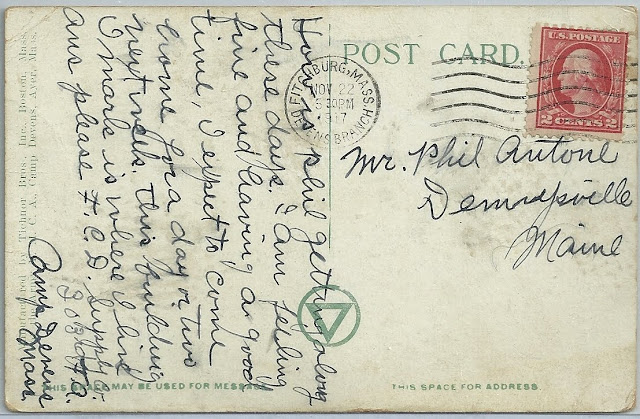 POST CARD.
FITCHBURG, MASS.
NOV 22
5 30 PM
1917
DEVENS BRANCH
U.S. POSTAGE
2 CENTS 2
Mr. Phil Antone
Dennysville
Maine
How is phil getting along
these days. I am feeling
fine and having a good
time I expect to come
home for a day or two
next week. This building
I mark is where I live
ans please F. C. D. Supply
Camp Devens
Mass.
Manufactured by Tichnor Bros. Inc., Boston, Mass.
Y. M. C. A., Camp Devens, Ayer, Mass.
THIS SPACE MAY BE USED FOR MESSAGE
THIS SPACE FOR ADDRESS.